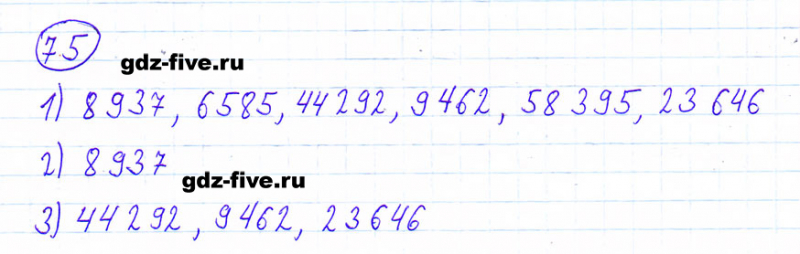 75
gdz-five.ru
1) 8 937, 6585, 44 292, 9 462, 58 395, 23 646
2) 8 937
gdz-five.ru
3) 44 292, 9 462, 23 646